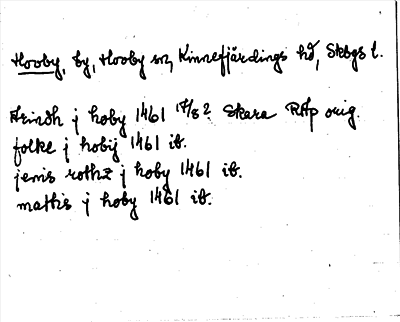 Hooby, by, Hooby sn, Kinnefjärdings hd, Skbgs l.
Arindh j hoby 1461 17/8 2 Skara RAp orig.
folke j hobij 1461 ib.
jenis rothz j hoby 1461 ib.
mathis j hoby 1461 ib.